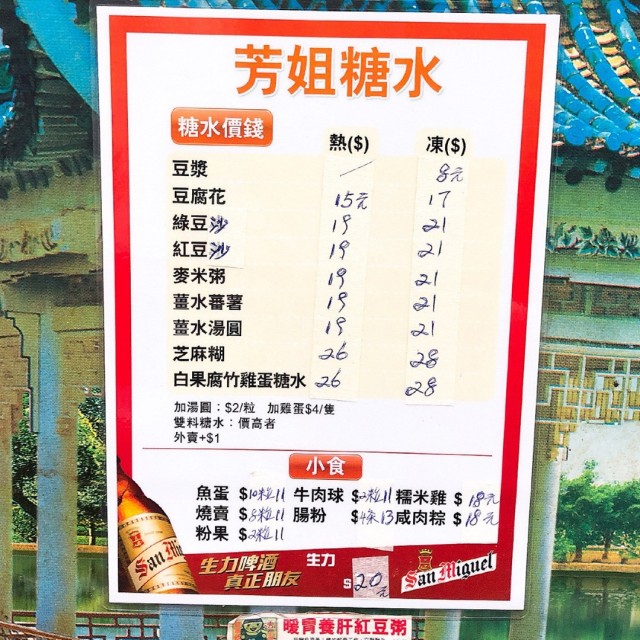 芳姐糖水
糖水價錢 熱($) 凍($)
豆漿 / 8元
豆腐花 15元 17
綠豆沙 19 21
紅豆沙 19 21
麥米粥 19 21
薑水蕃薯 19 21
薑水湯圓 19 21
芝麻糊 26 28
白果腐竹雞蛋糖水 26 28
加湯圓：$2/粒 加雞蛋$4/隻
雙料糖水：價高者
外賣+$1
小食
魚蛋 $10粒11 牛肉球 $2粒11 糯米雞 $18元
燒賣 $8粒11 腸粉 $4条13 咸肉粽 $18元
粉果 $2粒11
生力啤酒 生力
真正朋友 $20元 San Miguel
San Mig
暖胃養肝紅豆粥